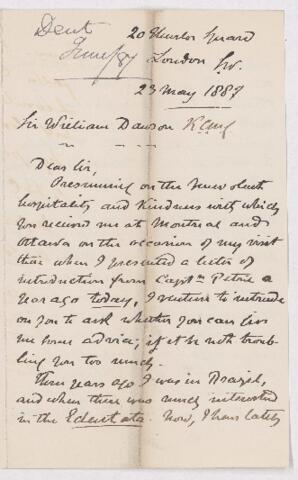 Dent
June/87
20 Thurlow Square
London SW.
23 May 1887
Sir William Dawson K.C.M.G
Dear Sir,
Presuming on the benevolent
hospitality and kindness with which
you received me at Montreal and
Ottawa on the occasion of my visit
there when I presented a letter of
introduction from Captn Petrie a
year ago today, I venture to intrude
on you to ask whether you can give
me some advice, if it be not troub-
ling you too much.
Three years ago I was in Brazil,
and when there was much interested
in the Edentata. Now, I have lately